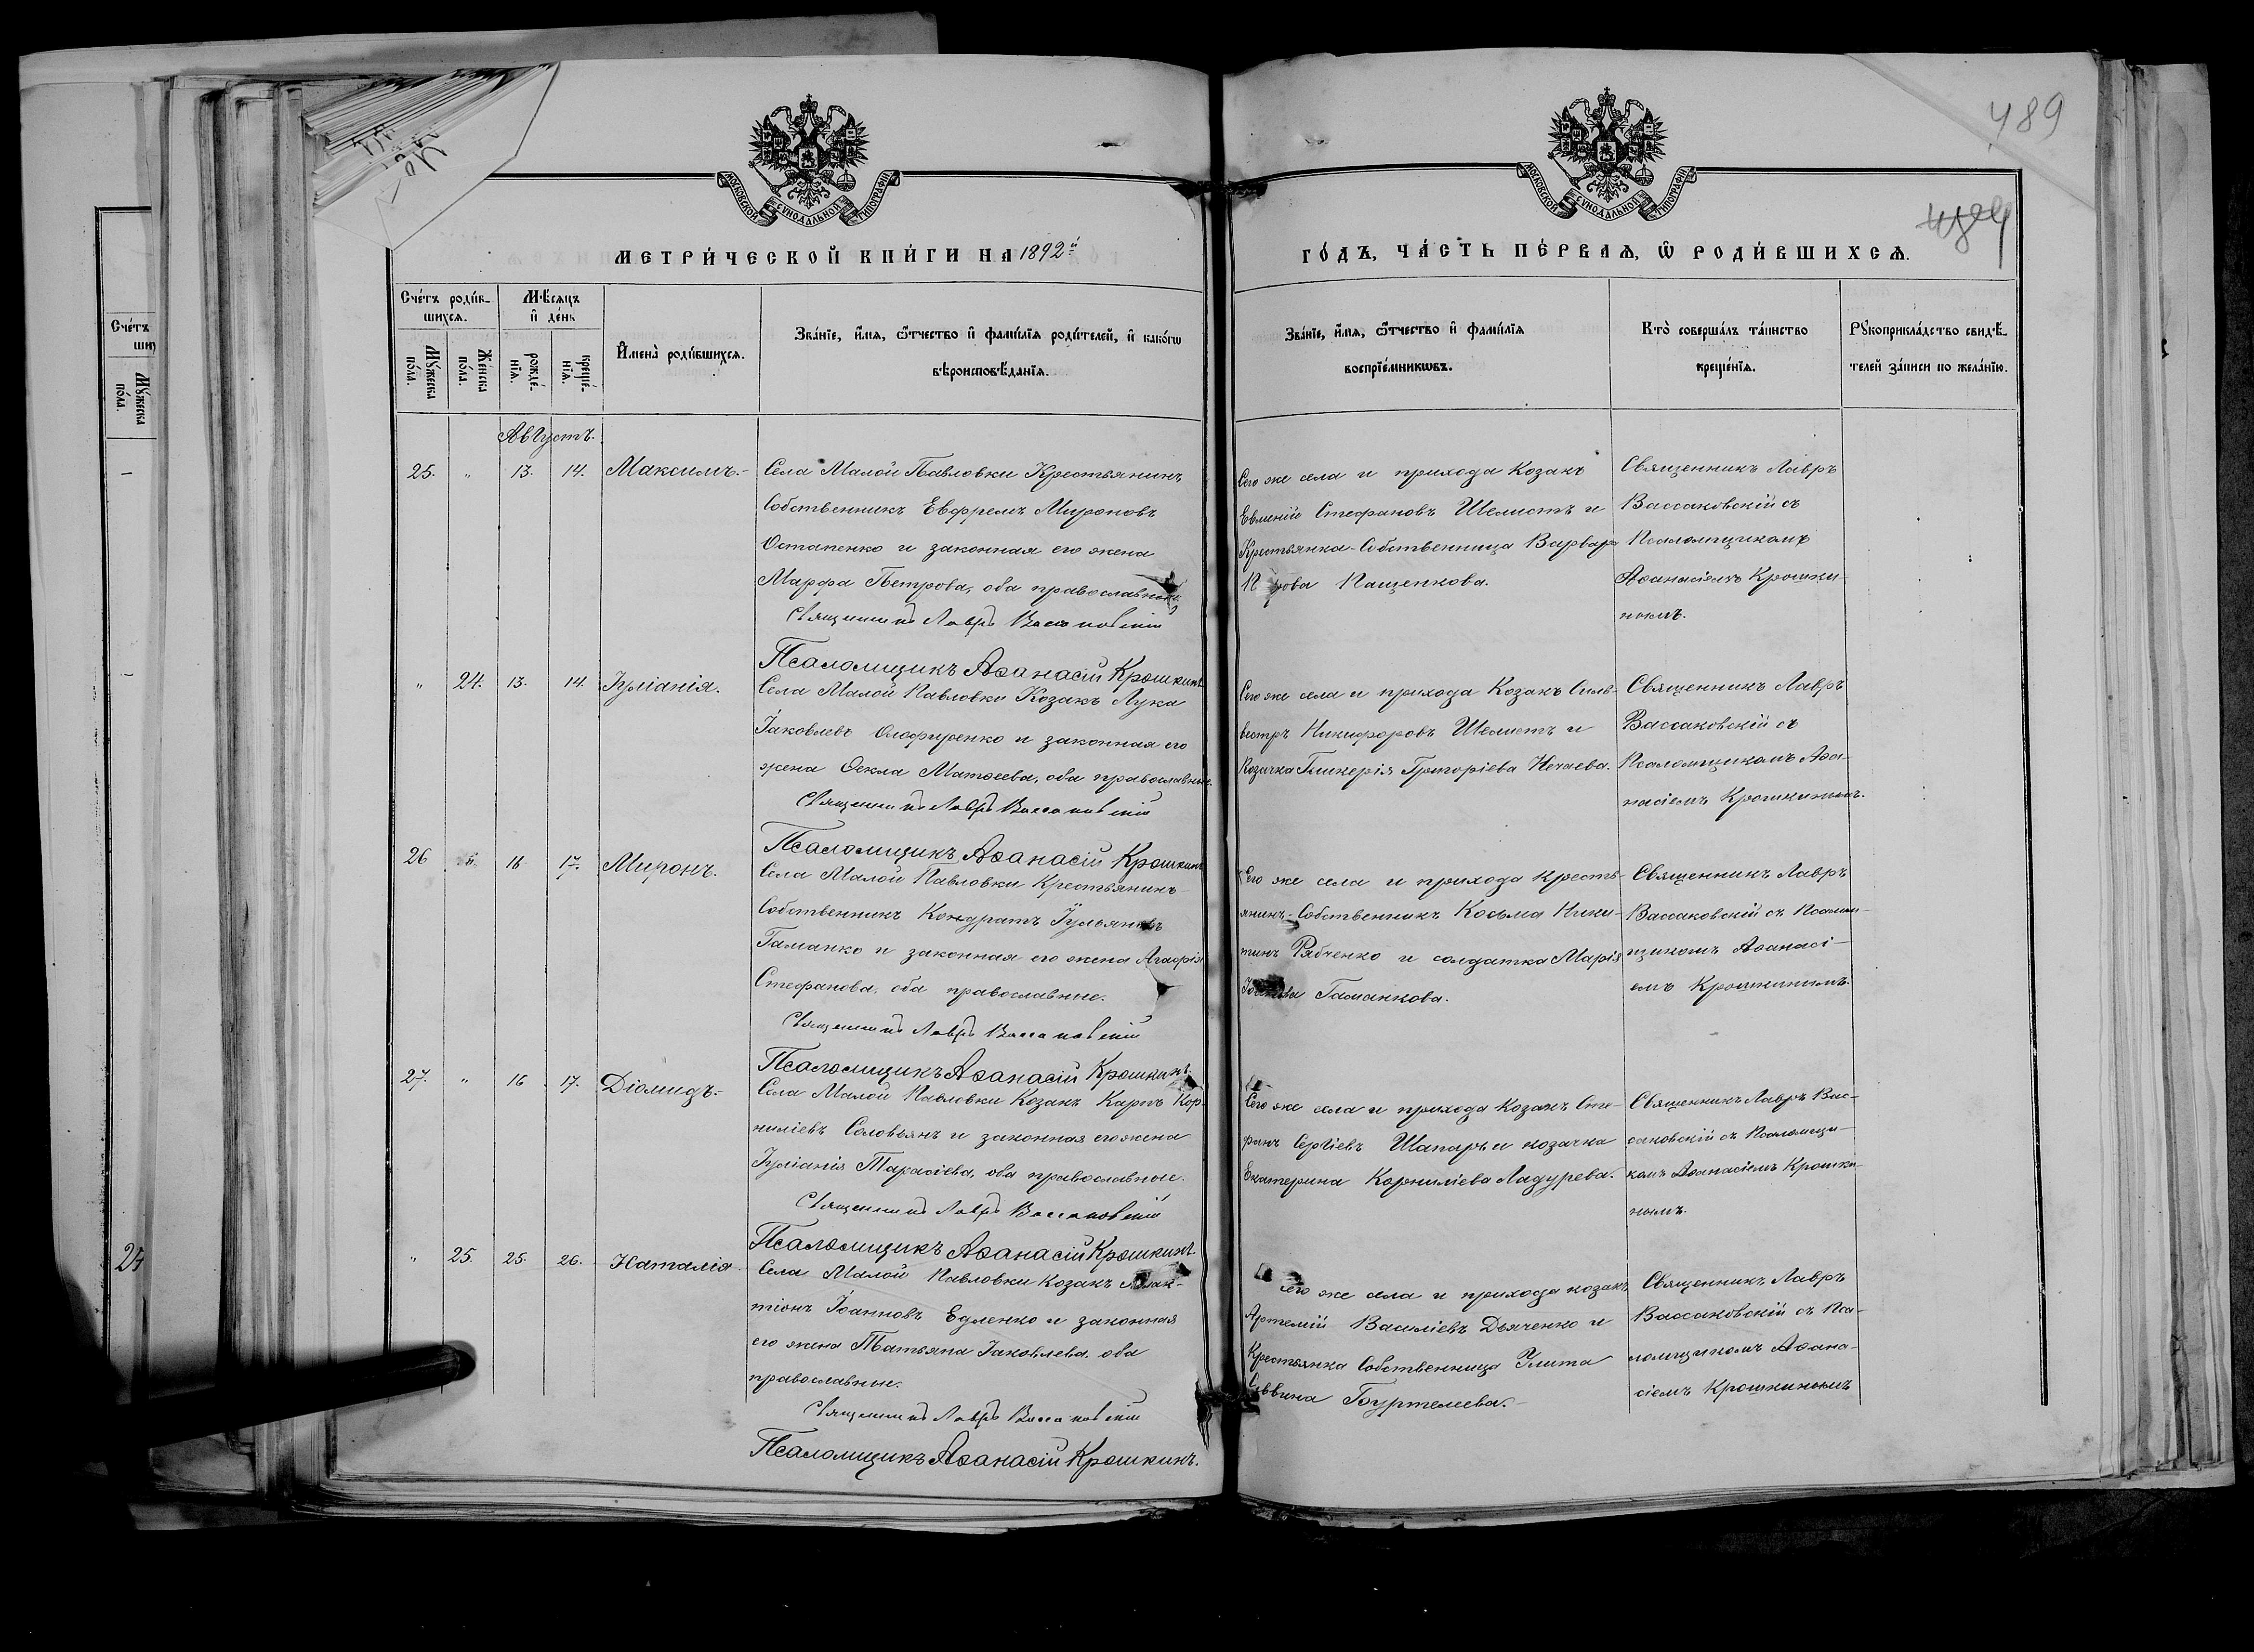 489
МОСКОВСКОЙ СѴНОДАЛЬНОЙ ТИПОГРАФІИ
МОСКОВСКОЙ СѴНОДАЛЬНОЙ ТИПОГРАФІИ
МЕТРИ́ЧЕСКОЙ КНИ́ГИ НА 1892й
ГО́ДЪ, ЧА́СТЬ ПЕ́РВАѦ, Ѡ҆ РОДИ́ВШИХСѦ.
Сче́тъ роди́в-
шихсѧ.
Мꙋ́жеска по́ла.
Же́нска по́ла.
Мѣ́сѧцъ
и҆ де́нь
рожде́-
нїѧ.
креще́-
нїѧ.
И҆мена̀ роди́вшихсѧ.
Зва́нїе, и҆́мѧ, ѻ҆́тчество и҆ фами́лїѧ роди́телей, и҆ како́гѡ
вѣроисповѣ́данїѧ.
Зва́нїе, и҆́мѧ, ѻ҆́тчество и҆ фами́лїѧ
воспрїе́мникѡвъ.
Кто̀ соверша́лъ та́инство
креще́нїѧ.
Рꙋкоприкла́дство свидѣ́-
телей за́писи по жела́нїю.
Сче́тъ
Мꙋ́жеска
по́ла.
Августъ.
25. " 13. 14. Максимъ.-
Села Малой Павловки Крестьянинъ
Собственникъ Евфремъ Мироновъ
Остапенко и законная его жена
Марфа Петрова, оба православные.
Священникъ Лавръ Вассаковскій
Псаломщикъ Аѳанасій Крошкинъ
Сего же села и прихода Козакъ
Евмений Стефановъ Шелистъ и
Крестьянка-Собственница Варвара
Пащенкова.
Священникъ Лавръ
Вассаковскій съ
Псаломщикомъ
Аѳанасіемъ Крошки-
нымъ.
" 24. 13. 14. Іуліанія.
Села Малой Павловки Козакъ Лука
Іаковлевъ Олофиренко и законная его
жена Ѳекла Матѳеева, оба православные.
Священникъ Лавръ Вассаковскій
Псаломщикъ Аѳанасій Крошкинъ
Сего же села и прихода Козакъ Силь-
вестръ Никифоровъ Шелистъ и
Козачка Гликерія Григоріева Нечаева.
Священникъ Лавръ
Вассаковскій съ
Псаломщикомъ Аѳа-
насіемъ Крошкинымъ.
26 " 16 17. Миронъ.
Села Малой Павловки Крестьянинъ
Собственникъ Кондратъ Іульяновъ
Гаманко и законная его жена Агафія
Стефанова, оба православные.
Священникъ Лавръ Вассаковскій
Псаломщикъ Аѳанасій Крошкинъ
Сего же села и прихода Кресть-
янинъ-Собственникъ Косьма Ники-
тинъ Рябченко и солдатка Марія
Гаманкова.
Священникъ Лавръ
Вассаковскій съ Псалом-
щикомъ Аѳанасі-
емъ Крошкинымъ.
27. " 16 17. Діомидъ.-
Села Малой Павловки Козакъ Карпъ Кор-
ниліевъ Соловьянъ и законная его жена
Іуліанія Тарасіева, оба православные.
Священникъ Лавръ Вассаковскій
Псаломщикъ Аѳанасій Крошкинъ.
Сего же села и прихода Козакъ Сте-
фанъ Сергіевъ Шапаръ и козачка
Екатерина Корниліева Ладурева.
Священникъ Лавръ Вас-
саковскій съ Псаломщи-
комъ Аѳанасіемъ Крошки-
нымъ.
" 25. 25. 26. Наталія
Села Малой Павловки Козакъ
тіонъ Іоанновъ Едленко и законная
его жена Татьяна Іаковлева, оба
православные.
Священникъ Лавръ Вассаковскій
Псаломщикъ Аѳанасій Крошкинъ.
Сего же села и прихода козакъ
Артемій Василіевъ Дьяченко и
Крестьянка Собственница Улита
Саввина Гоуртелева.
Священникъ Лавръ
Вассаковскій съ Пса-
ломщикомъ Аѳана-
сіемъ Крошкинымъ